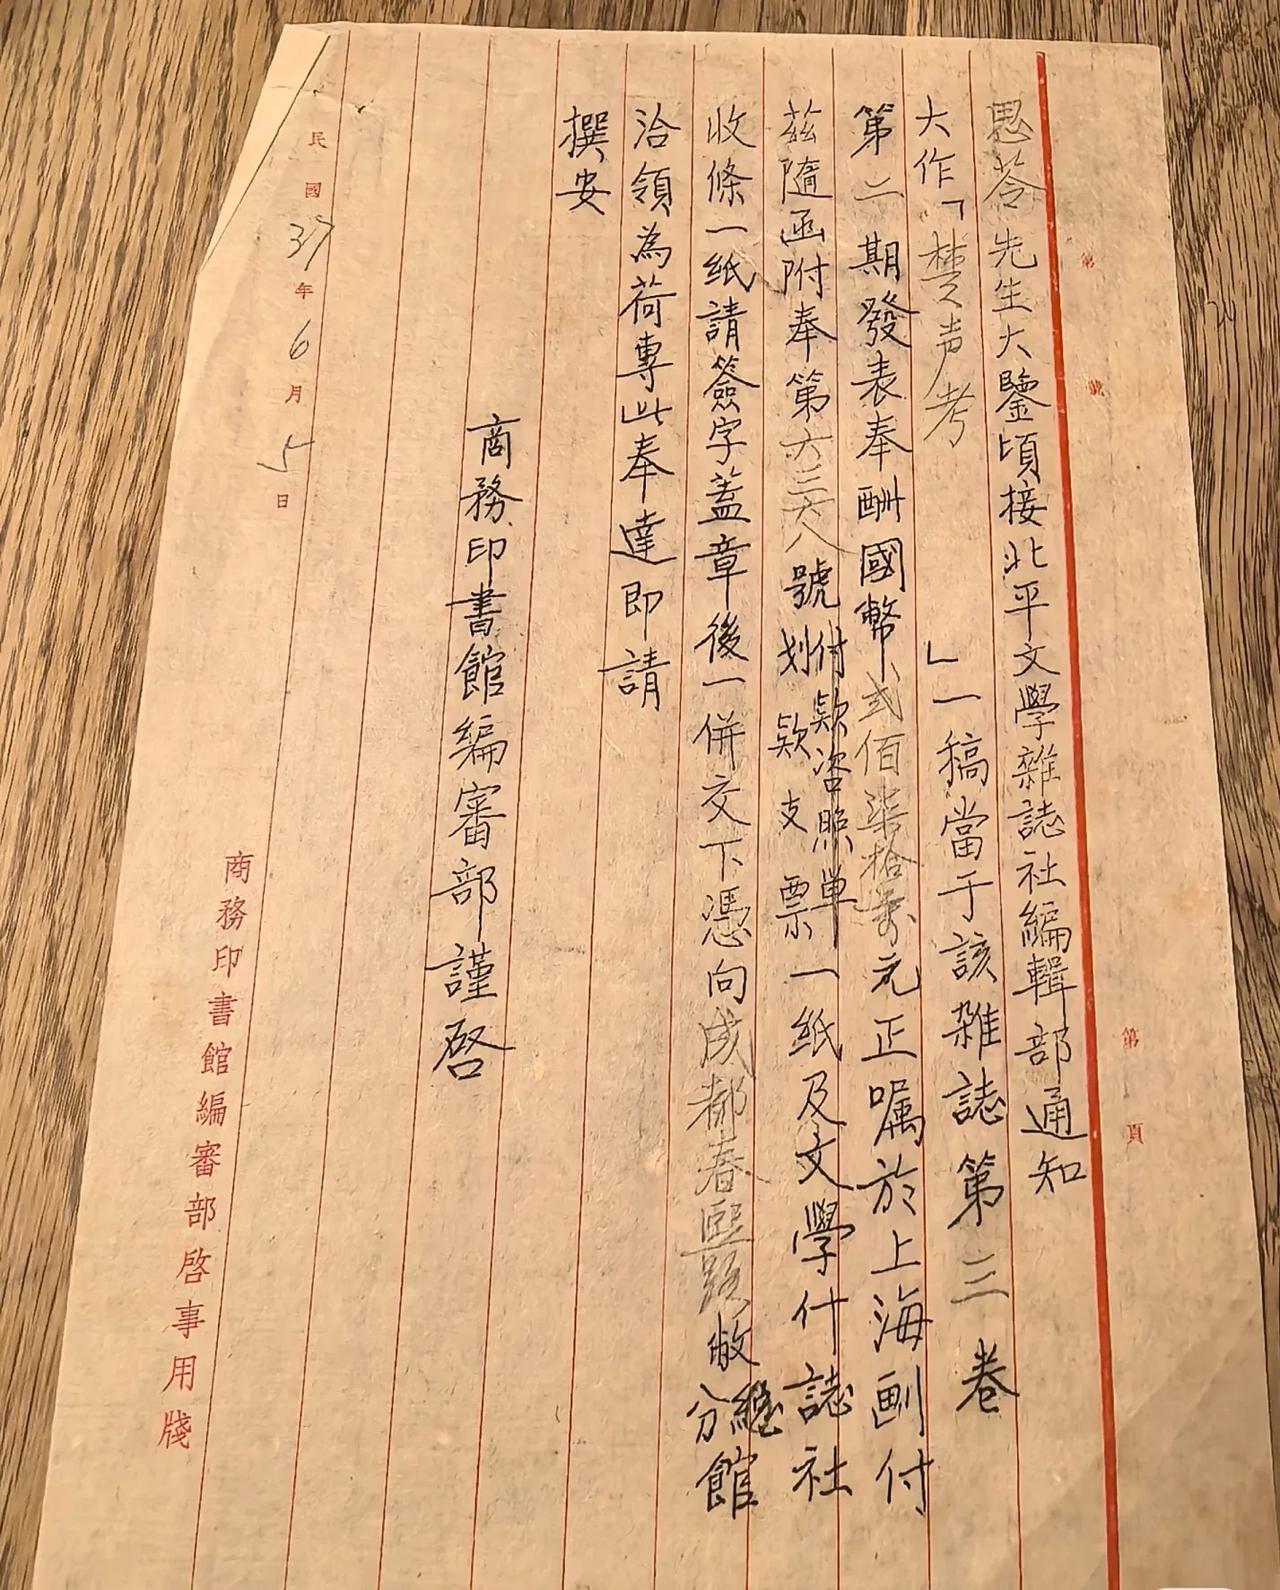 第　號　第　頁
思苓先生大鑒頃接北平文學雜誌社編輯部通知
大作「楚声考」一稿當于該雜誌第三卷
第二期發表奉酬國幣貳佰柒拾萬元正嘱於上海劃付
茲隨函附奉第六三六八號付款洽照单划款支票一紙及文學什誌社
收條一紙請簽字蓋章後一併交下憑向成都春熙路敝分總館
洽領為荷專此奉達即請
撰安
商務印書館編審部謹啓
民國37年6月5日
商務印書館編審部啓事用牋